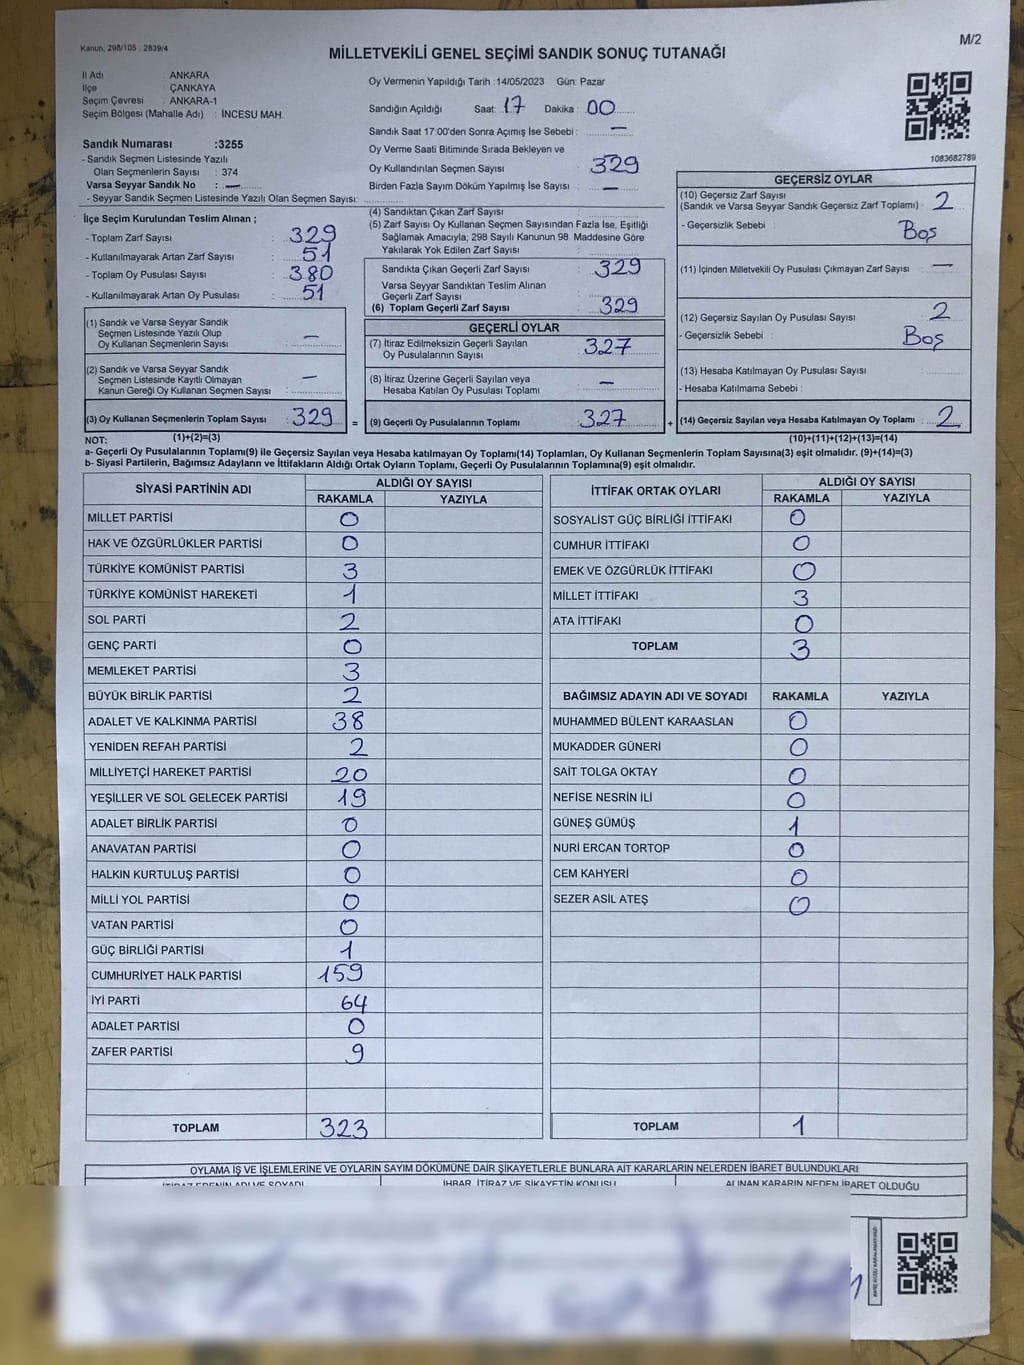 Kanun, 298/105 , 2839/4
M/2
MİLLETVEKİLİ GENEL SEÇİMİ SANDIK SONUÇ TUTANAĞI
İl Adı : ANKARA
İlçe : ÇANKAYA
Seçim Çevresi : ANKARA-1
Seçim Bölgesi (Mahalle Adı) : İNCESU MAH.
Oy Vermenin Yapıldığı Tarih :14/05/2023 Gün: Pazar
Sandığın Açıldığı Saat: 17 Dakika : 00
Sandık Saat 17:00'den Sonra Açımış İse Sebebi : —
Oy Verme Saati Bitiminde Sırada Bekleyen ve
Oy Kullandırılan Seçmen Sayısı : 329
Birden Fazla Sayım Döküm Yapılmış İse Sayısı : —
1083682789
Sandık Numarası :3255
- Sandık Seçmen Listesinde Yazılı
Olan Seçmenlerin Sayısı : 374
Varsa Seyyar Sandık No : —
- Seyyar Sandık Seçmen Listesinde Yazılı Olan Seçmen Sayısı:
İlçe Seçim Kurulundan Teslim Alınan ;
- Toplam Zarf Sayısı : 329
- Kullanılmayarak Artan Zarf Sayısı : 51
- Toplam Oy Pusulası Sayısı : 380
- Kullanılmayarak Artan Oy Pusulası : 51
(1) Sandık ve Varsa Seyyar Sandık
Seçmen Listesinde Yazılı Olup
Oy Kullanan Seçmenlerin Sayısı : —
(2) Sandık ve Varsa Seyyar Sandık
Seçmen Listesinde Kayıtlı Olmayan
Kanun Gereği Oy Kullanan Seçmen Sayısı : —
(3) Oy Kullanan Seçmenlerin Toplam Sayısı : 329
(1)+(2)=(3)
(4) Sandıktan Çıkan Zarf Sayısı :
(5) Zarf Sayısı Oy Kullanan Seçmen Sayısından Fazla İse, Eşitliği
Sağlamak Amacıyla, 298 Sayılı Kanunun 98. Maddesine Göre
Yakılarak Yok Edilen Zarf Sayısı :
Sandıkta Çıkan Geçerli Zarf Sayısı : 329
Varsa Seyyar Sandıktan Teslim Alınan
Geçerli Zarf Sayısı :
(6) Toplam Geçerli Zarf Sayısı : 329
GEÇERLİ OYLAR
(7) İtiraz Edilmeksizin Geçerli Sayılan
Oy Pusulalarının Sayısı : 327
(8) İtiraz Üzerine Geçerli Sayılan veya
Hesaba Katılan Oy Pusulası Toplamı : —
= (9) Geçerli Oy Pusulalarının Toplamı : 327
GEÇERSİZ OYLAR
(10) Geçersiz Zarf Sayısı
(Sandık ve Varsa Seyyar Sandık Geçersiz Zarf Toplamı) : 2
- Geçersizlik Sebebi : Boş
(11) İçinden Milletvekili Oy Pusulası Çıkmayan Zarf Sayısı : —
(12) Geçersiz Sayılan Oy Pusulası Sayısı : 2
- Geçersizlik Sebebi : Boş
(13) Hesaba Katılmayan Oy Pusulası Sayısı :
- Hesaba Katılmama Sebebi :
+ (14) Geçersiz Sayılan veya Hesaba Katılmayan Oy Toplamı : 2
(10)+(11)+(12)+(13)=(14)
NOT:
a- Geçerli Oy Pusulalarının Toplamı(9) ile Geçersiz Sayılan veya Hesaba katılmayan Oy Toplamı(14) Toplamları, Oy Kullanan Seçmenlerin Toplam Sayısına(3) eşit olmalıdır. (9)+(14)=(3)
b- Siyasi Partilerin, Bağımsız Adayların ve İttifakların Aldığı Ortak Oyların Toplamı, Geçerli Oy Pusulalarının Toplamına(9) eşit olmalıdır.
SİYASİ PARTİNİN ADI ALDIĞI OY SAYISI
RAKAMLA YAZIYLA
MİLLET PARTİSİ 0
HAK VE ÖZGÜRLÜKLER PARTİSİ 0
TÜRKİYE KOMÜNİST PARTİSİ 3
TÜRKİYE KOMÜNİST HAREKETİ 1
SOL PARTİ 2
GENÇ PARTİ 0
MEMLEKET PARTİSİ 3
BÜYÜK BİRLİK PARTİSİ 2
ADALET VE KALKINMA PARTİSİ 38
YENİDEN REFAH PARTİSİ 2
MİLLİYETÇİ HAREKET PARTİSİ 20
YEŞİLLER VE SOL GELECEK PARTİSİ 19
ADALET BİRLİK PARTİSİ 0
ANAVATAN PARTİSİ 0
HALKIN KURTULUŞ PARTİSİ 0
MİLLİ YOL PARTİSİ 0
VATAN PARTİSİ 0
GÜÇ BİRLİĞİ PARTİSİ 1
CUMHURİYET HALK PARTİSİ 159
İYİ PARTİ 64
ADALET PARTİSİ 0
ZAFER PARTİSİ 9
TOPLAM 323
İTTİFAK ORTAK OYLARI ALDIĞI OY SAYISI
RAKAMLA YAZIYLA
SOSYALİST GÜÇ BİRLİĞİ İTTİFAKI 0
CUMHUR İTTİFAKI 0
EMEK VE ÖZGÜRLÜK İTTİFAKI 0
MİLLET İTTİFAKI 3
ATA İTTİFAKI 0
TOPLAM 3
BAĞIMSIZ ADAYIN ADI VE SOYADI RAKAMLA YAZIYLA
MUHAMMED BÜLENT KARAASLAN 0
MUKADDER GÜNERİ 0
SAİT TOLGA OKTAY 0
NEFİSE NESRİN İLİ 0
GÜNEŞ GÜMÜŞ 1
NURİ ERCAN TORTOP 0
CEM KAHYERİ 0
SEZER ASİL ATEŞ 0
TOPLAM 1
OYLAMA İŞ VE İŞLEMLERİNE VE OYLARIN SAYIM DÖKÜMÜNE DAİR ŞİKAYETLERLE BUNLARA AİT KARARLARIN NELERDEN İBARET BULUNDUKLARI
İTİRAZ EDENİN ADI VE SOYADI İHBAR, İTİRAZ VE ŞİKAYETİN KONUSU ALINAN KARARIN NEDEN İBARET OLDUĞU